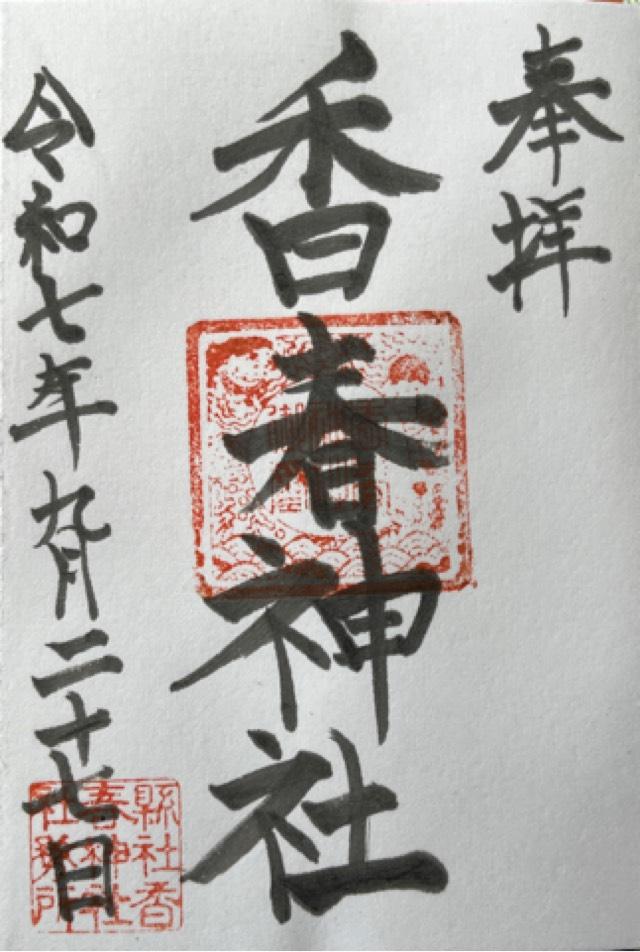 奉拝
香春神社
令和七年九月二十七日
縣社香
春神社
社務所